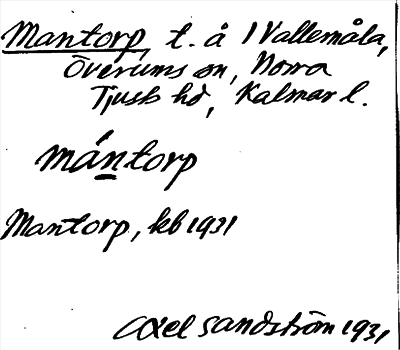 Mantorp, t. å 1 Vallemåla,
Överums sn, Norra
Tjusts hd, Kalmar l.
mántorp
Mantorp, kb 1931
Axel Sandström 1931